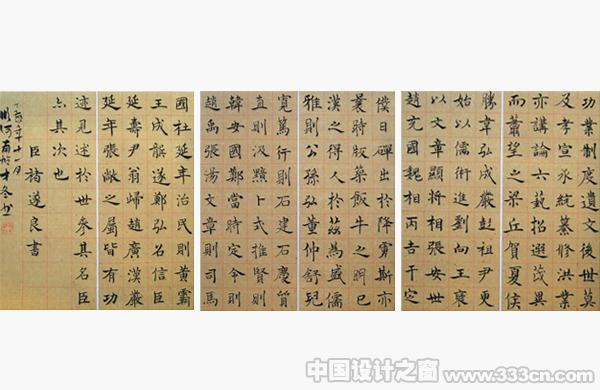 功業制度遺文後世莫
及孝宣承統纂修洪業
亦講論六藝招選茂異
而蕭望之梁丘賀夏侯
勝韋弘成嚴彭祖尹更
始以儒術進劉向王褒
以文章顯將相張安世
趙充國魏相丙吉于定
僕日磾出於降虜斯亦
曩時版築飯牛之明已
漢之得人於茲為盛儒
雅則公孫弘董仲舒兒
寬篤行則石建石慶質
直則汲黯卜式推賢則
韓安國鄭當時定令則
趙禹張湯文章則司馬
國杜延年治民則黃霸
王成龔遂鄭弘名信臣
延壽尹翁歸趙廣漢嚴
延年張敞之屬皆有功
迹見述於世參其名臣
亦其次也
臣褚遂良書
十一月
中国设计之窗
www.333cn.com